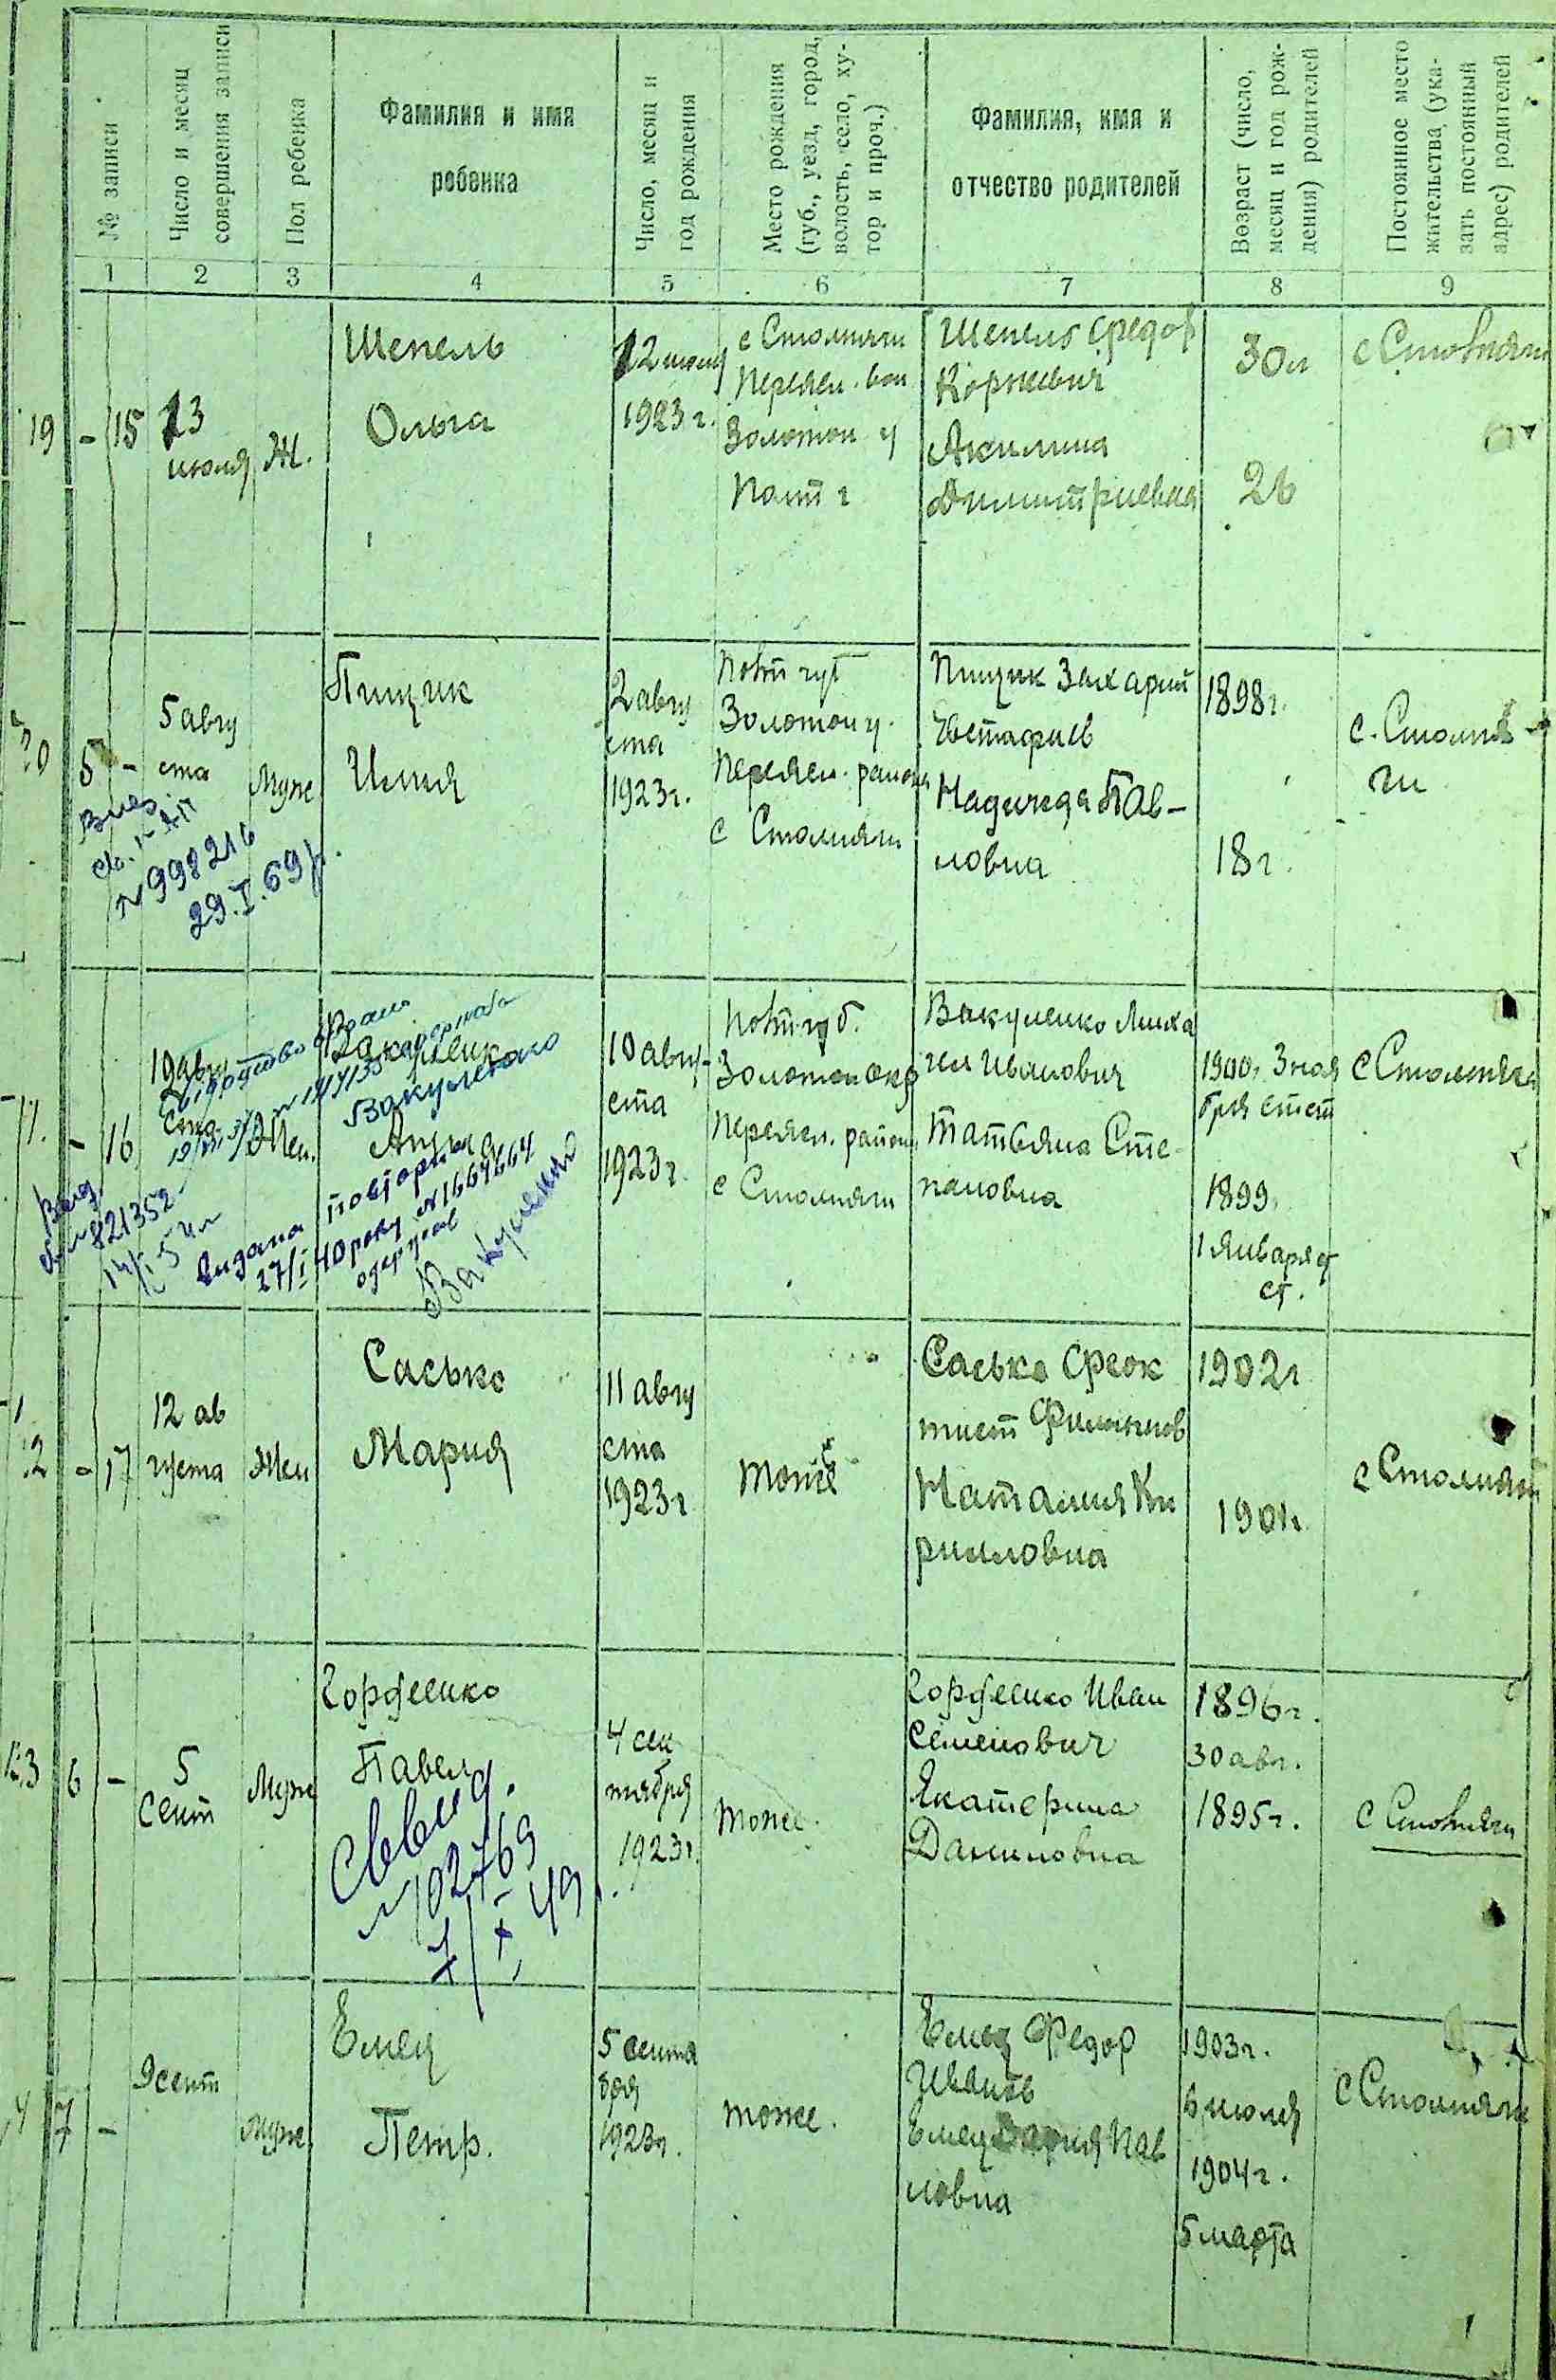 № записи
Число и месяц
совершения записи
Пол ребенка
Фамилия и имя
ребенка
Число, месяц и
год рождения
Место рождения
(губ., уезд, город,
волость, село, ху-
тор и проч.)
Фамилия, имя и
отчество родителей
Возраст (число,
месяц и год рож-
дения) родителей
Постоянное место
жительства (ука-
зать постоянный
адрес) родителей
1
2
3
4
5
6
7
8
9
19
-
15
13
июля
Ж.
Шепель
Ольга
12 июля
1923 г.
с Столпяги
Переясл. вол
Золотон. у
Полт г
Шепель Федор
Корнеевич
Акилина
Димитриевна
30 л
26
с Столпяги
20
5
-
5 авгу
ста
Муж
Пищик
Илия
2 авгу
ста
1923 г.
Полт губ
Золотон у.
Переясл. района
с Столпяги
Пищик Захарий
Евстафиев
Надежда Пав-
ловна
1898 г.
18 г.
с. Столпя-
ги
№ 998216
29.I.69р.
-
16
10 авгу
ста
Жен.
Вакуленко
Вакуленко
Анна
10 авгу-
ста
1923 г.
Полт губ.
Золотон окр
Переясл. район,
с Столпяги
Вакуленко Миха
ил Иванович
Татьяна Сте-
пановна
1900 г. 3 ноя
бря ст ст
1899
1 января ст
ст.
с Столпяги
821352
видана повторна
27/I 40 року № 1664664
одержав
Вакуленко
-
17
12 ав
густа
Жен
Саська
Мария
11 авгу
ста
1923 г
тоже
Саська Феок
тист Филиппов
Наталия Ки
рилловна
1902 г
1901 г.
с Столпяги
23
6
-
5
Сент
Муж
Гордеенко
Павел
Свид.
№ 102769
4 сен
тября
1923 г.
тоже.
Гордеенко Иван
Семенович
Екатерина
Даниловна
1896 г.
30 авг.
1895 г.
с Столпяги
7
-
9 сент
Муж.
Емец
Петр.
5 сентя
бря
1923 г.
тоже.
Емец Федор
Иванов
Емец Дария Пав
ловна
1903 г.
6 июля
1904 г.
5 марта
с Столпяги